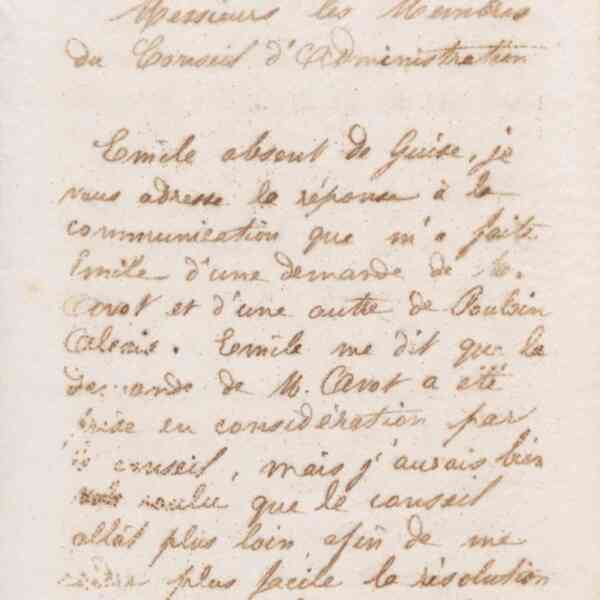 Messieurs les Membres
du Conseil d'Administration
Emile absent de Guise, je
vous adresse la réponse à la
communication que m'a faite
Emile d'une demande de M.
Cavot et d'une autre de Poulain
Alexis. Emile me dit que la
demande de M. Cavot a été
prise en considération par
le conseil, mais j'aurais bien
voulu que le conseil
allât plus loin afin de me
rendre plus facile la résolution